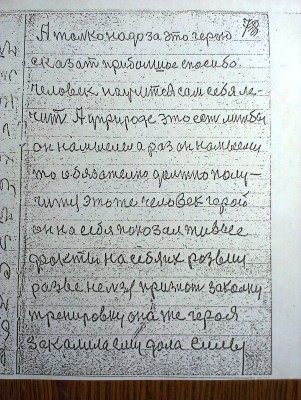 73
А толко надо за это герою
сказат прибольшое спосибо.
человек научится сам себя ле-
чит А у природе это ест
он намыслел а раз он намыслел
то обязателно должно полу-
чит, это же человек герой
он на себя показал живые
факты на себя их розвил
розве незя признат закалку
тренировку она же героя
закалила ему дала силы